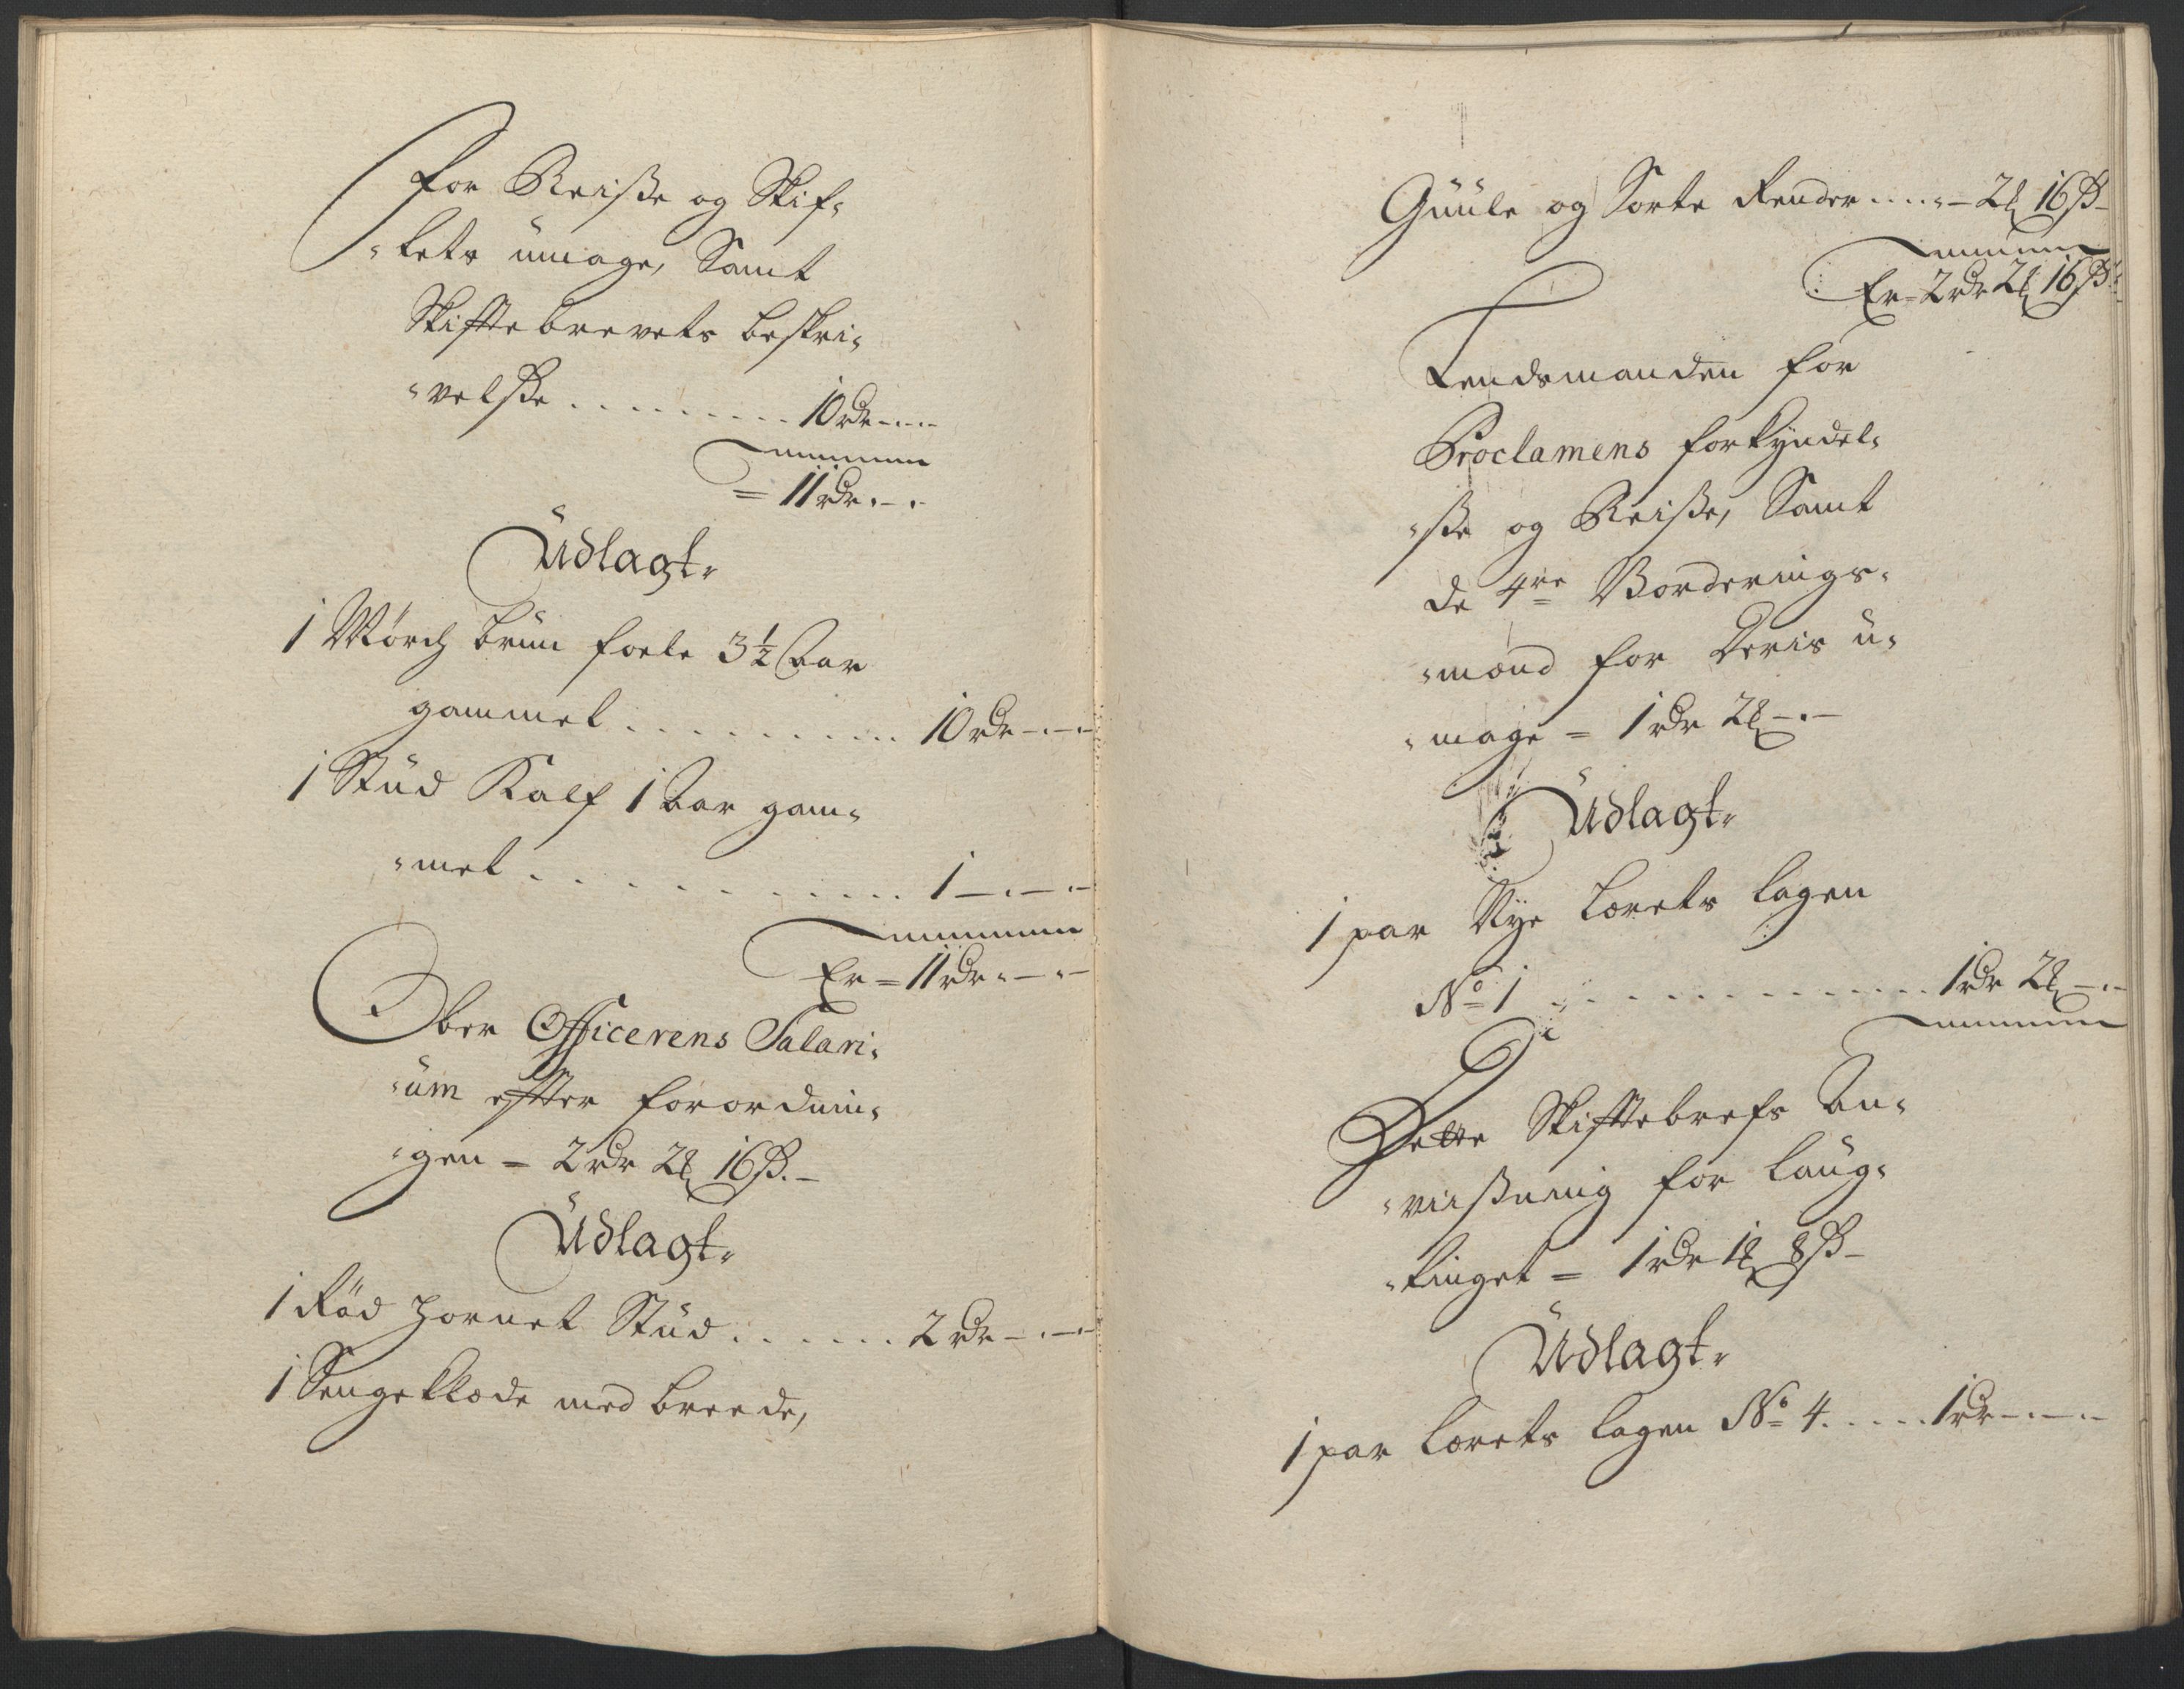 for Reiße og Skif-
-tets umage, Samt
Skiftebrevets beskri-
-velße . . . . . . . . . 10 rdr - . -
= 11 rdr . - .
Udlagt.
1 Mørch brun foele 3½ Aar
gammel . . . . . . . . . 10 rdr - . -
1 Stud Kalf 1 Aar gam-
-mel . . . . . . . . . 1 - . - . -
Er = 11 rdr . - . -
Ober Officerens Salari-
-um effter forordnin-
-gen = 2 rdr 2 ℔ 16 ß. -
Udlagt.
1 Rød hornet Stud . . . . . . 2 rdr - . -
1 Sengeklæde med breede,
Guule og Sorte Render . . . . - 2 ℔ 16 ß -
Er = 2 rdr 2 ℔ 16 ß
Lendsmanden for
Proclamens forkyndel-
-ße og Reiße, Samt
de 4re Vorderings-
-mænd for Deris u-
-mage = 1 rdr 2 ℔ - . -
Udlagt.
1 par Nye Lærets lagen
No 1 . . . . . . . . . 1 rdr 2 ℔ - . -
Dette Skiftebrefs An-
-viißning for Laug-
-tinget = 1 rdr 1 ℔ 8 ß -
Udlagt.
1 par Lærets lagen No 4 . . . . . 1 rdr - . - . -